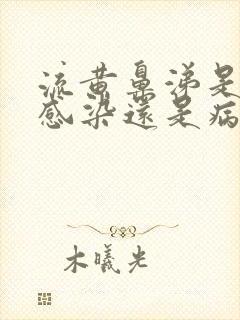 流黄鼻涕是
感染还是病
木曦光